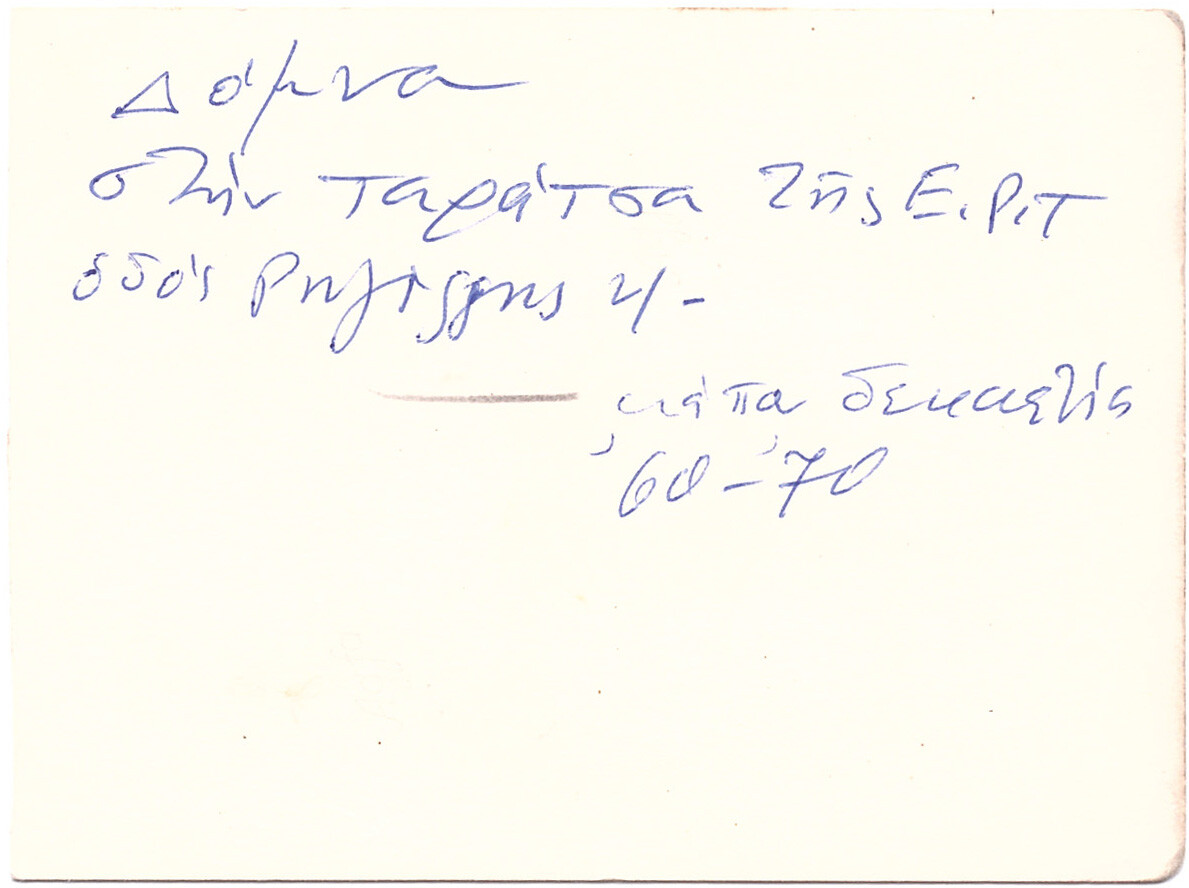 Δόμνα
στήν ταράτσα τῆς Ε.Ρ.Τ
ὁδός Ρηγίλλης 4 -
κάπα δεκαετίες
'60 - '70